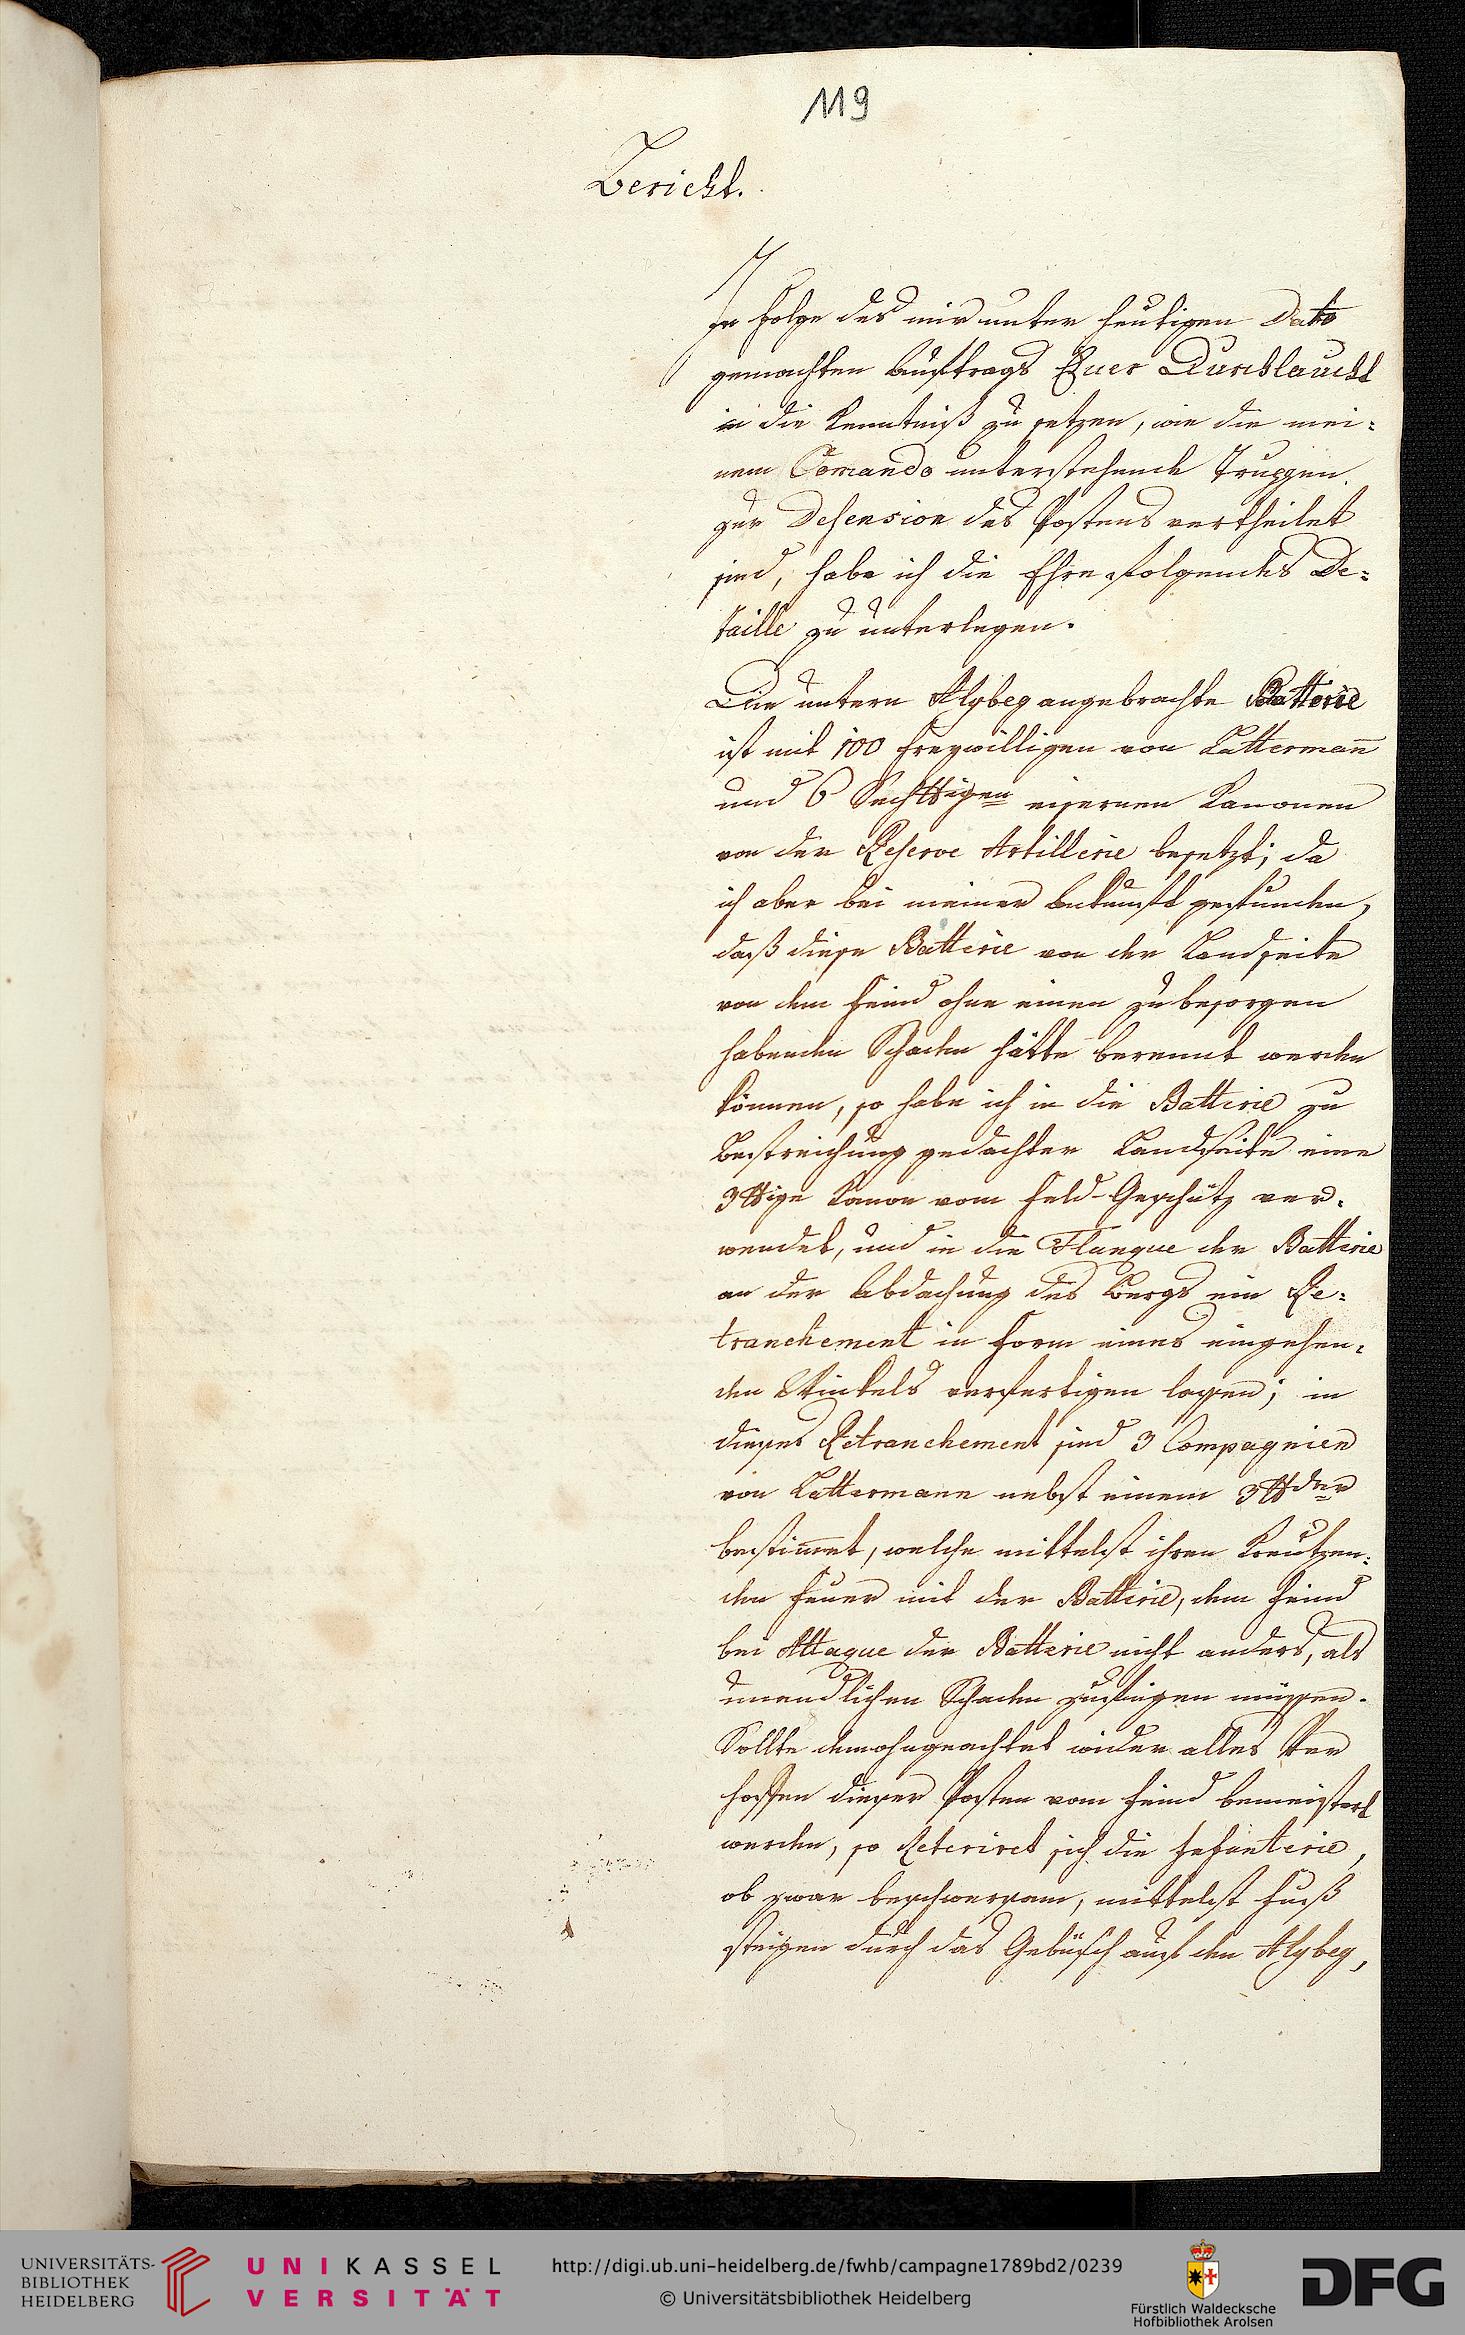 119
Bericht.
In Folge des mir unter heutigen Dato
gemachten Auftrags Euer Durchlaucht
in die Kenntniß zu setzen, wie die mei=
nem Comando unterstehende Truppen
zur Defension des Postens vertheilet
sind, habe ich die Ehre folgendes De=
taille zu unterlegen.
Die untern Alybeg angebrachte Batterie
ist mit 100 Freywilligen von Lattermañ
und 6 Sech℔igen eisernen Kanonen
von der Reserve Artillerie besetzt; da
ich aber bei meiner Ankunft gefunden,
daß diese Batterie von der Landseite
von dem Feind ohne einen zu besorgen
habenden Schaden hätte berennt werden
können, so habe ich in die Batterie zu
Bestreichung gedachter Landseite eine
3℔ige Kanon vom Feld-Geschütz ver=
wendet, und in die Flanque der Batterie
an der Abdachung des Bergs ein Re=
tranchement in Form eines eingehen=
den Winkels verfertigen lassen; in
dieses Retranchement sind 3 Compagnien
von Lattermann nebst einem 3℔der
bestim̃et, welche mittelst ihren Kreutzen=
den Feuer mit der Batterie, dem Feind
bei Attaque der Batterie nicht anders, als
unendlichen Schaden zufügen müssen.
Sollte demohngeachtet wider alles Ver
hoffen dieser Posten vom Feind bemeistert
werden, so Reteriret sich die Infanterie,
ob zwar beschwersam, mittelst Fuß
steigen durch das Gebüsch auf den Alybeg,
UNIVERSITÄTS-
BIBLIOTHEK
HEIDELBERG
UNIKASSEL
VERSITÄT
http://digi.ub.uni-heidelberg.de/fwhb/campagne1789bd2/0239
© Universitätsbibliothek Heidelberg
Fürstlich Waldecksche
Hofbibliothek Arolsen
DFG